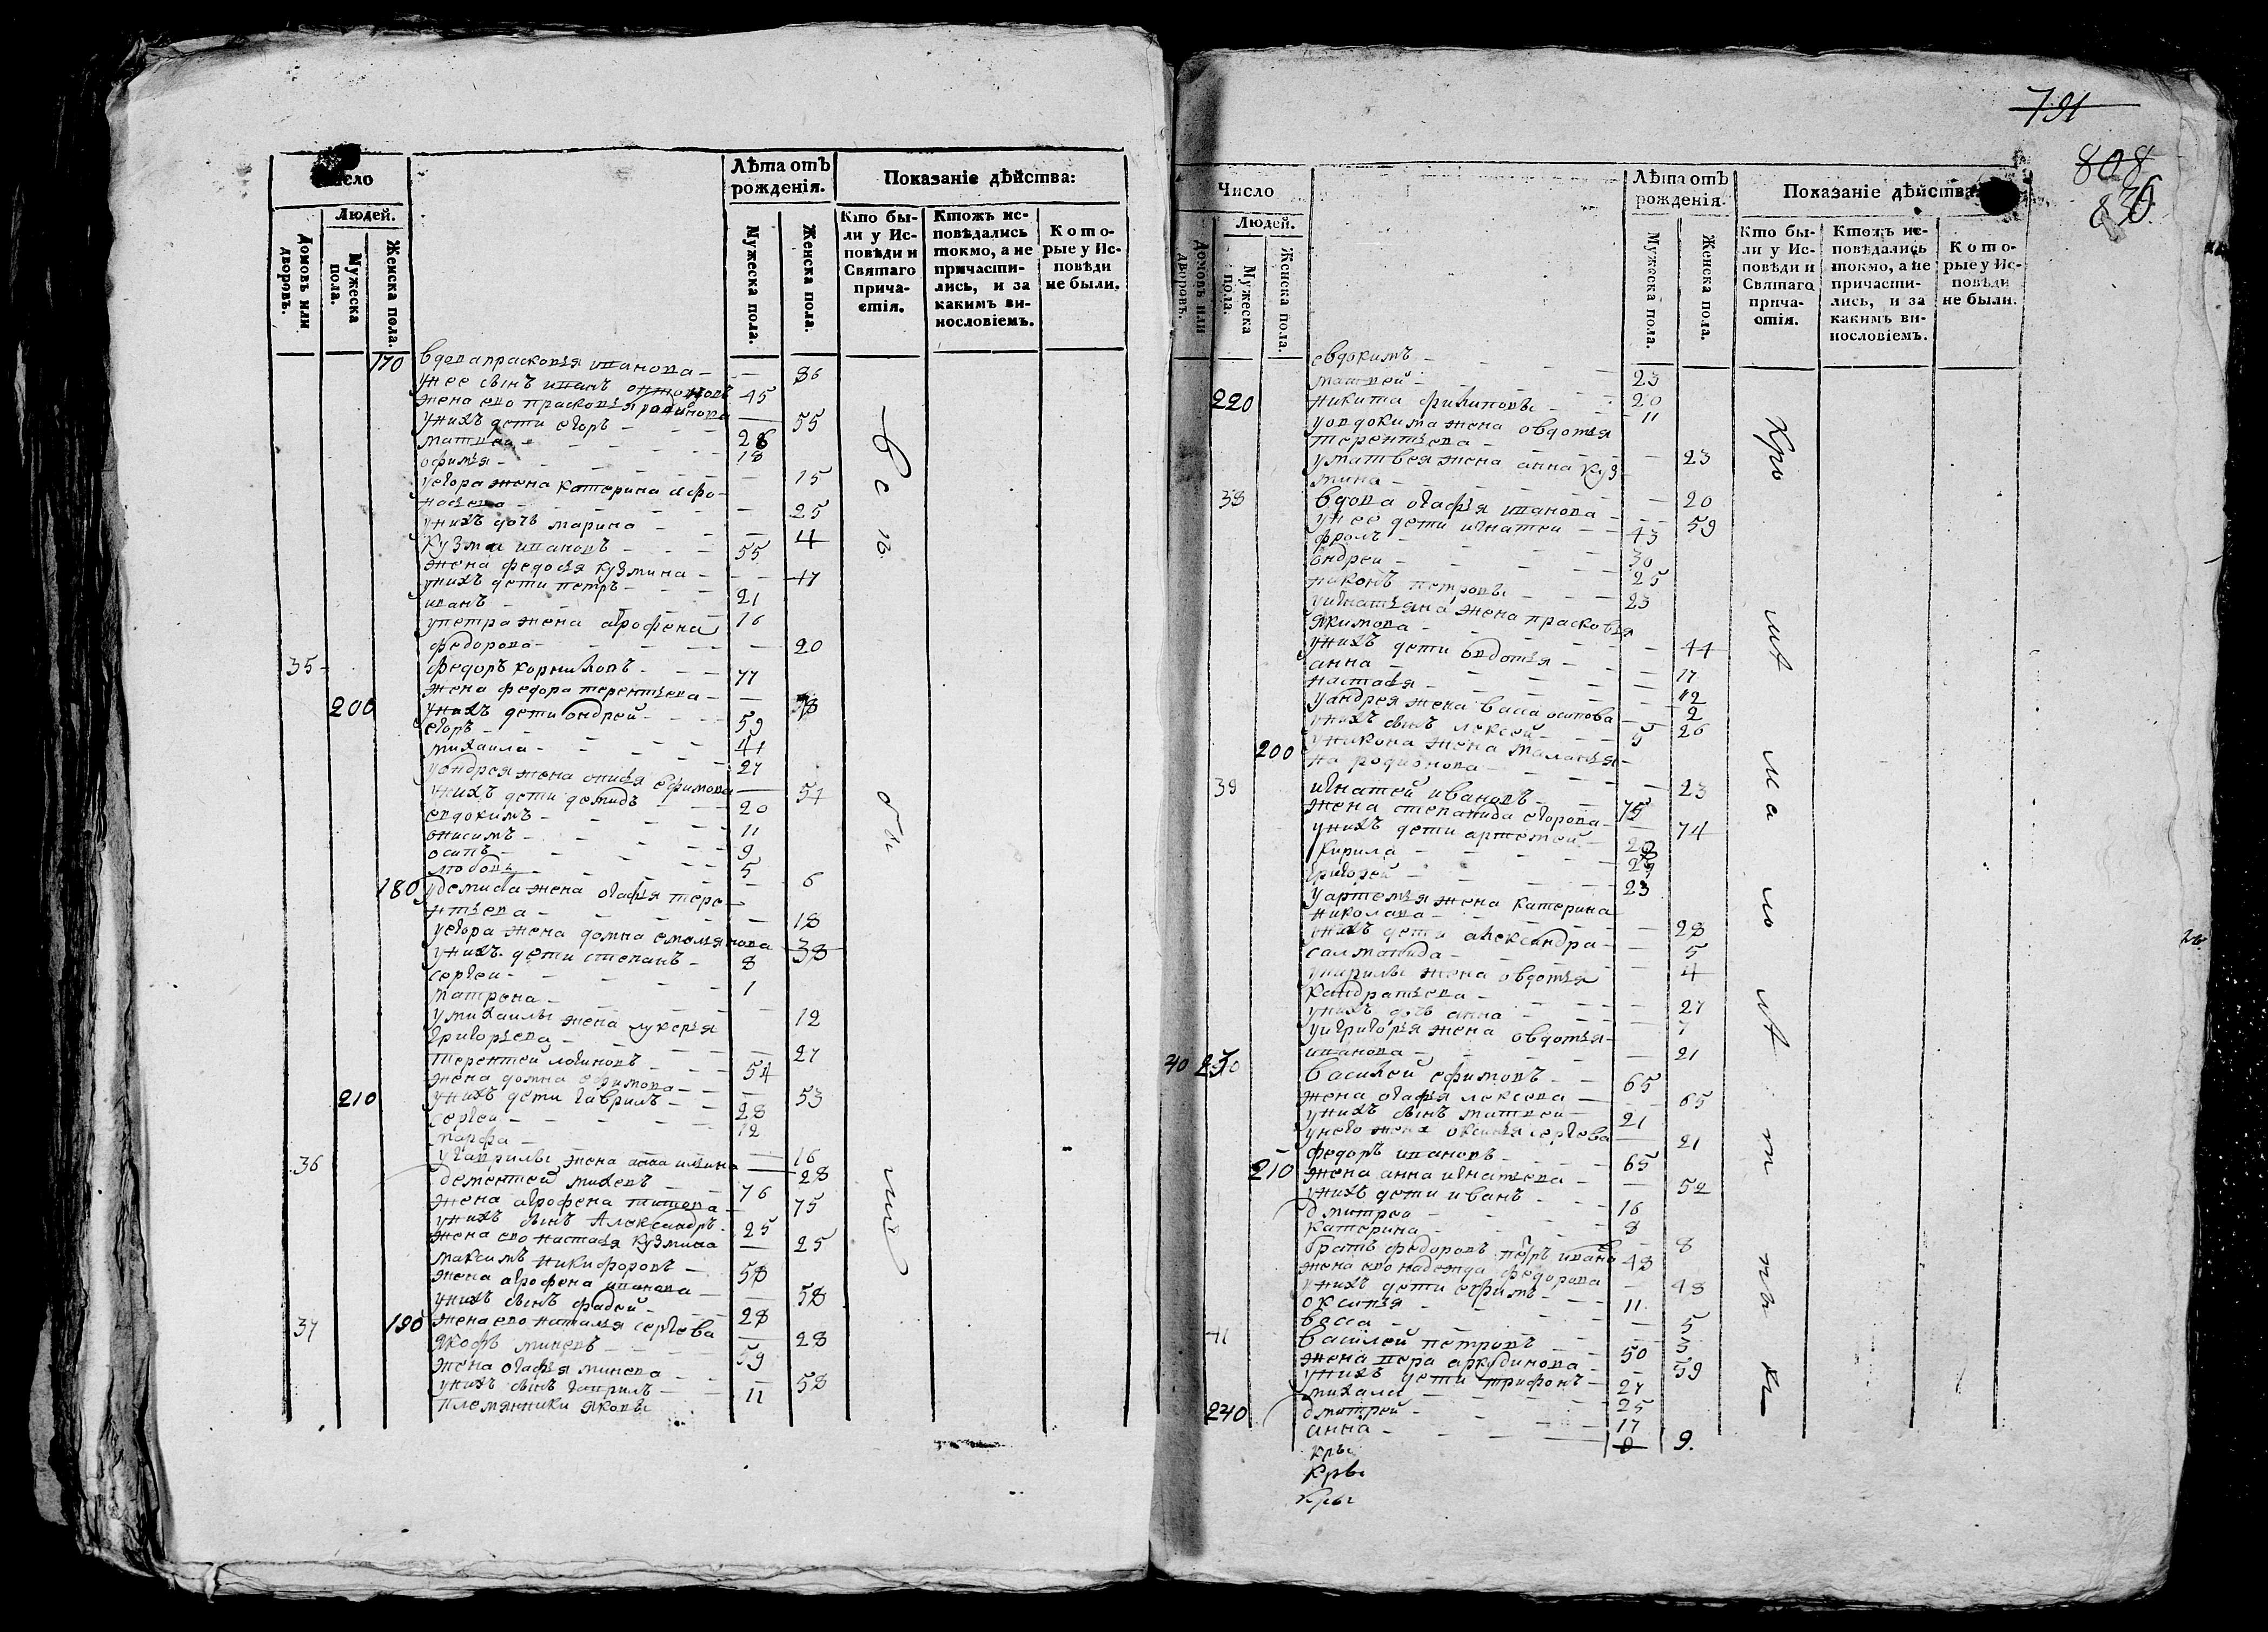 791
808
836
Число
Людей.
Домовъ или дворовъ.
Мужеска пола.
Женска пола.
Лѣта отъ рожденія.
Мужеска пола.
Женска пола.
Показаніе дѣйства:
Кто бы-
ли у Ис-
повѣди и
Святаго
прича-
стія.
Ктожъ ис-
повѣдались
токмо, а не
причасти-
лись, и за
какимъ ви-
нословіемъ.
Кото-
рые у Ис-
повѣди
не были.
170 вдова прасковья иванова 86
у нее сынъ иванъ 45
жена ево прасковья родионова 55
у нихъ дети егоръ 26
матвеи 18
офимья 15
у егора жена катерина афо-
насьева 25
у нихъ дочь марина 4
кузма ивановъ 55
жена федосья кузмина 47
у нихъ дети петръ 21
иванъ 16
у петра жена агрофена
федорова 20
35 федоръ корниловъ 77
жена федора терентьева 78
200 у нихъ дети андрей 59
егоръ 41
михаила 27
у андрея жена ефимова 54
у нихъ дети демидъ 20
евдокимъ 11
онисимъ 9
осипъ 5
любовь 6
180 у демида жена огафья тере-
нтьева 18
у егора жена домна емельянова 38
у нихъ дети степанъ 8
сергеи 1
матрона 12
у михаилы жена лукерья
григорьева 27
терентеи логиновъ 54
жена домна ефимова 53
210 у нихъ дети гаврилъ 28
сергеи 12
марфа 16
у гаврилы жена анна ильина 28
36 дементеи михеевъ 76
жена агрофена титова 75
у нихъ сынъ Александръ 25
жена ево настасья кузмина 25
максимъ никифоровъ 58
жена агрофена иванова 58
у нихъ сынъ фадеи 28
190 жена ево наталья сергева 28
37 якофъ минеевъ 59
жена огафья минеева 58
у нихъ сынъ гаврилъ 11
племянники яковы
Число
Людей.
Домовъ или дворовъ.
Мужеска пола.
Женска пола.
Лѣта отъ рожденія.
Мужеска пола.
Женска пола.
Показаніе дѣйства
Кто бы-
ли у Ис-
повѣди и
Святаго
прича-
стія.
Ктожъ ис-
повѣдались
токмо, а не
причасти-
лись, и за
какимъ ви-
нословіемъ.
Кото-
рые у Ис-
повѣди
не были.
евдокимъ 23
матвеи 20
220 никита филиповы 11
у овдокима жена овдотья
терентьева 23
у матвея жена анна куз-
мина 20
38 вдова огафья иванова 59
у нее дети игнатеи 43
фролъ 30
андреи 25
никонъ петровы 23
у игнатья жена прасковья
якимова 44
у нихъ дети овдотья 17
анна 12
настасья 2
у андрея жена васса осипова 26
у нихъ сынъ лексей 5
200 у никона жена маланья
родионова 23
39 игнатей ивановъ 75
жена степанида егорова 74
у нихъ дети артемей
кирила
григорей 23
у артемья жена катерина
николаева 28
у нихъ дети александра 5
саломанида 4
у кирилы жена овдотья
кандратьева 27
у нихъ дочь анна 7
у григорья жена овдотья
иванова 21
40 230 василей ефимовъ 65
жена огафья лексеева 65
у нихъ сынъ матвеи 21
у него жена оксинья сергева 21
федоръ ивановъ 65
210 жена анна игнатьева 52
у нихъ дети иванъ 16
дмитреи 8
катерина 8
братъ федоровъ петръ ивано 48
жена ево надежда федорова 48
у нихъ дети ефимъ 11
оксинья 5
васса 3
41 василей петровъ 50
жена вера 59
у нихъ дети трифонъ 27
михаилъ 25
240 дмитрей 17
анна 9.
кры
кры
кры